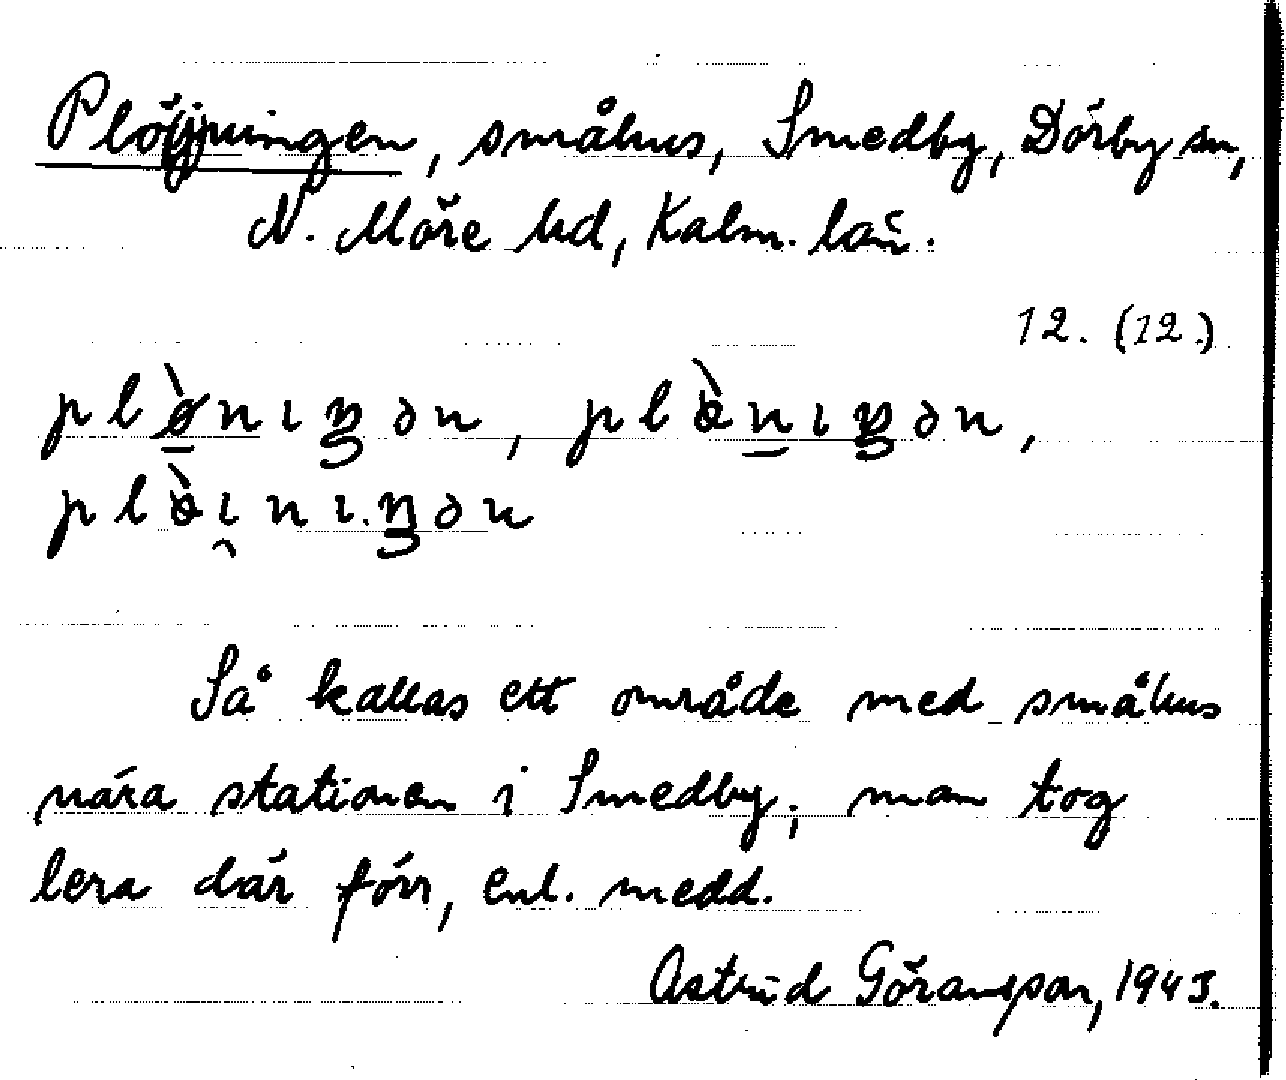 Plöjningen, småhus, Smedby, Dörby sn,
N. Möre hd, Kalm. län.
12. (12.)
plø̀nıŋən, plö̀nıŋən,
plö̀ı̯nı.ŋən
Så kallas ett område med småhus
nära stationen i Smedby; man tog
lera där förr, enl. medd.
Astrid Göransson, 1943.